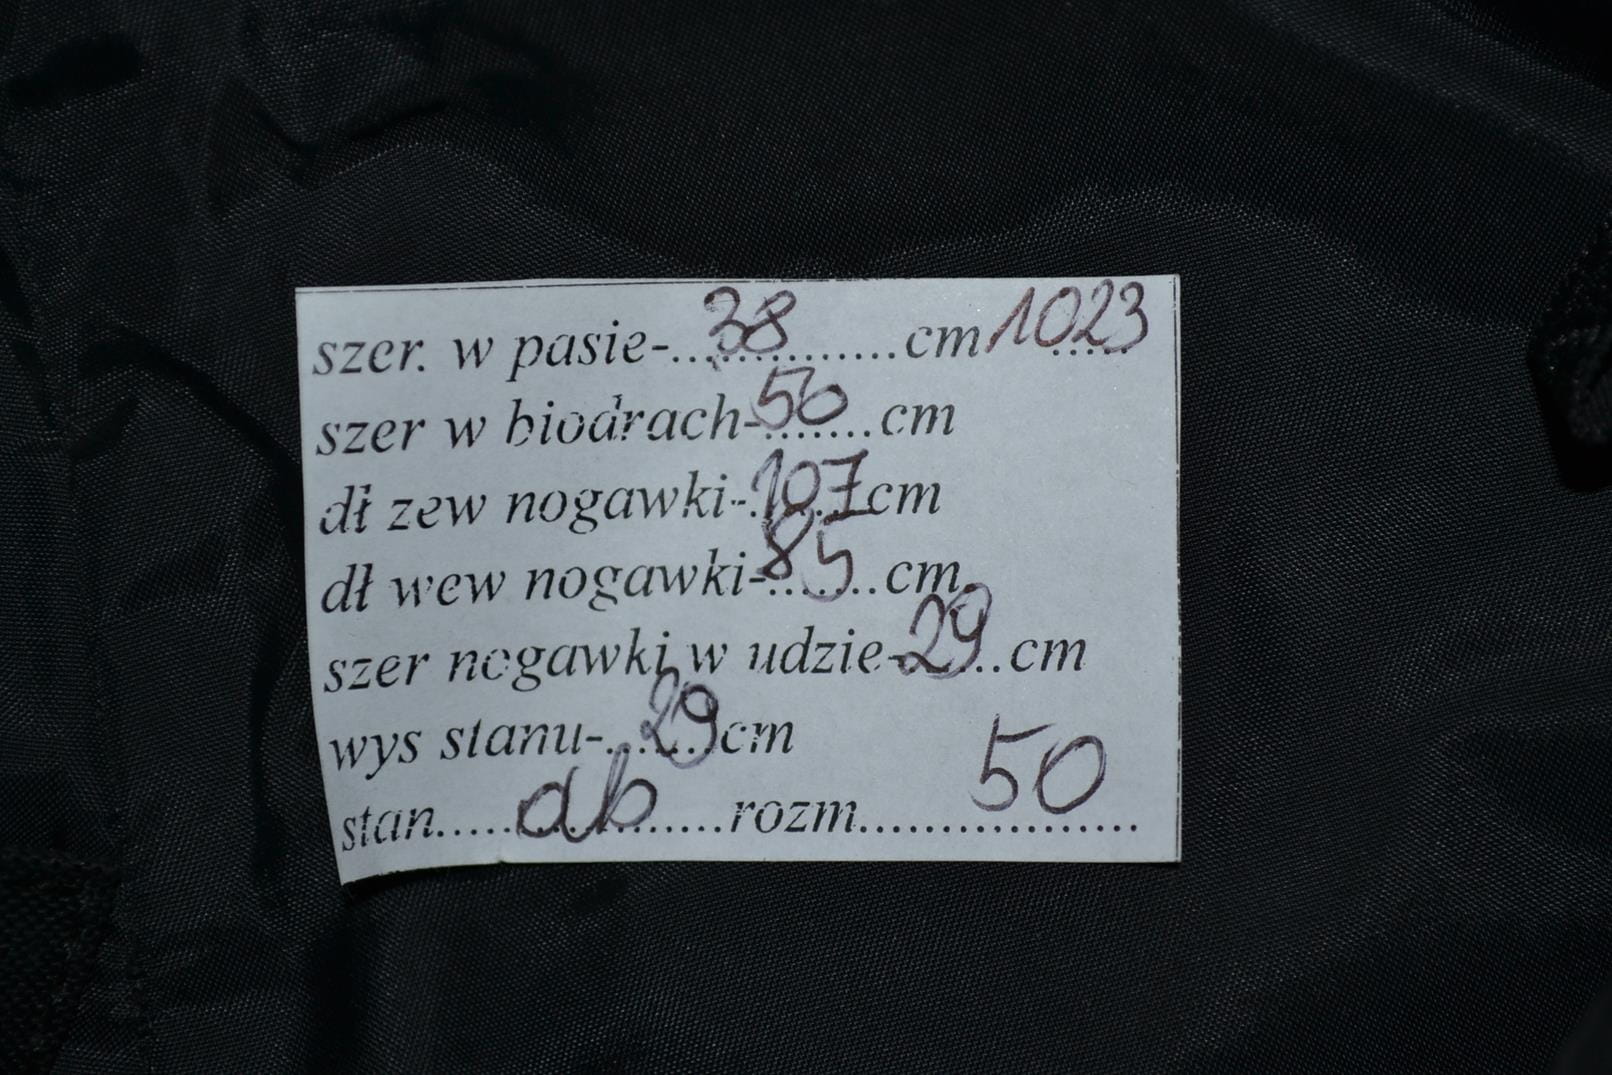 szer. w pasie-...38...........cm 1023
szer w biodrach-50.......cm
dł zew nogawki-.107.cm
dł wew nogawki-.85....cm
szer nogawki w udzie-29...cm
wys stanu-..29...cm
stan.....db.......rozm......50...........